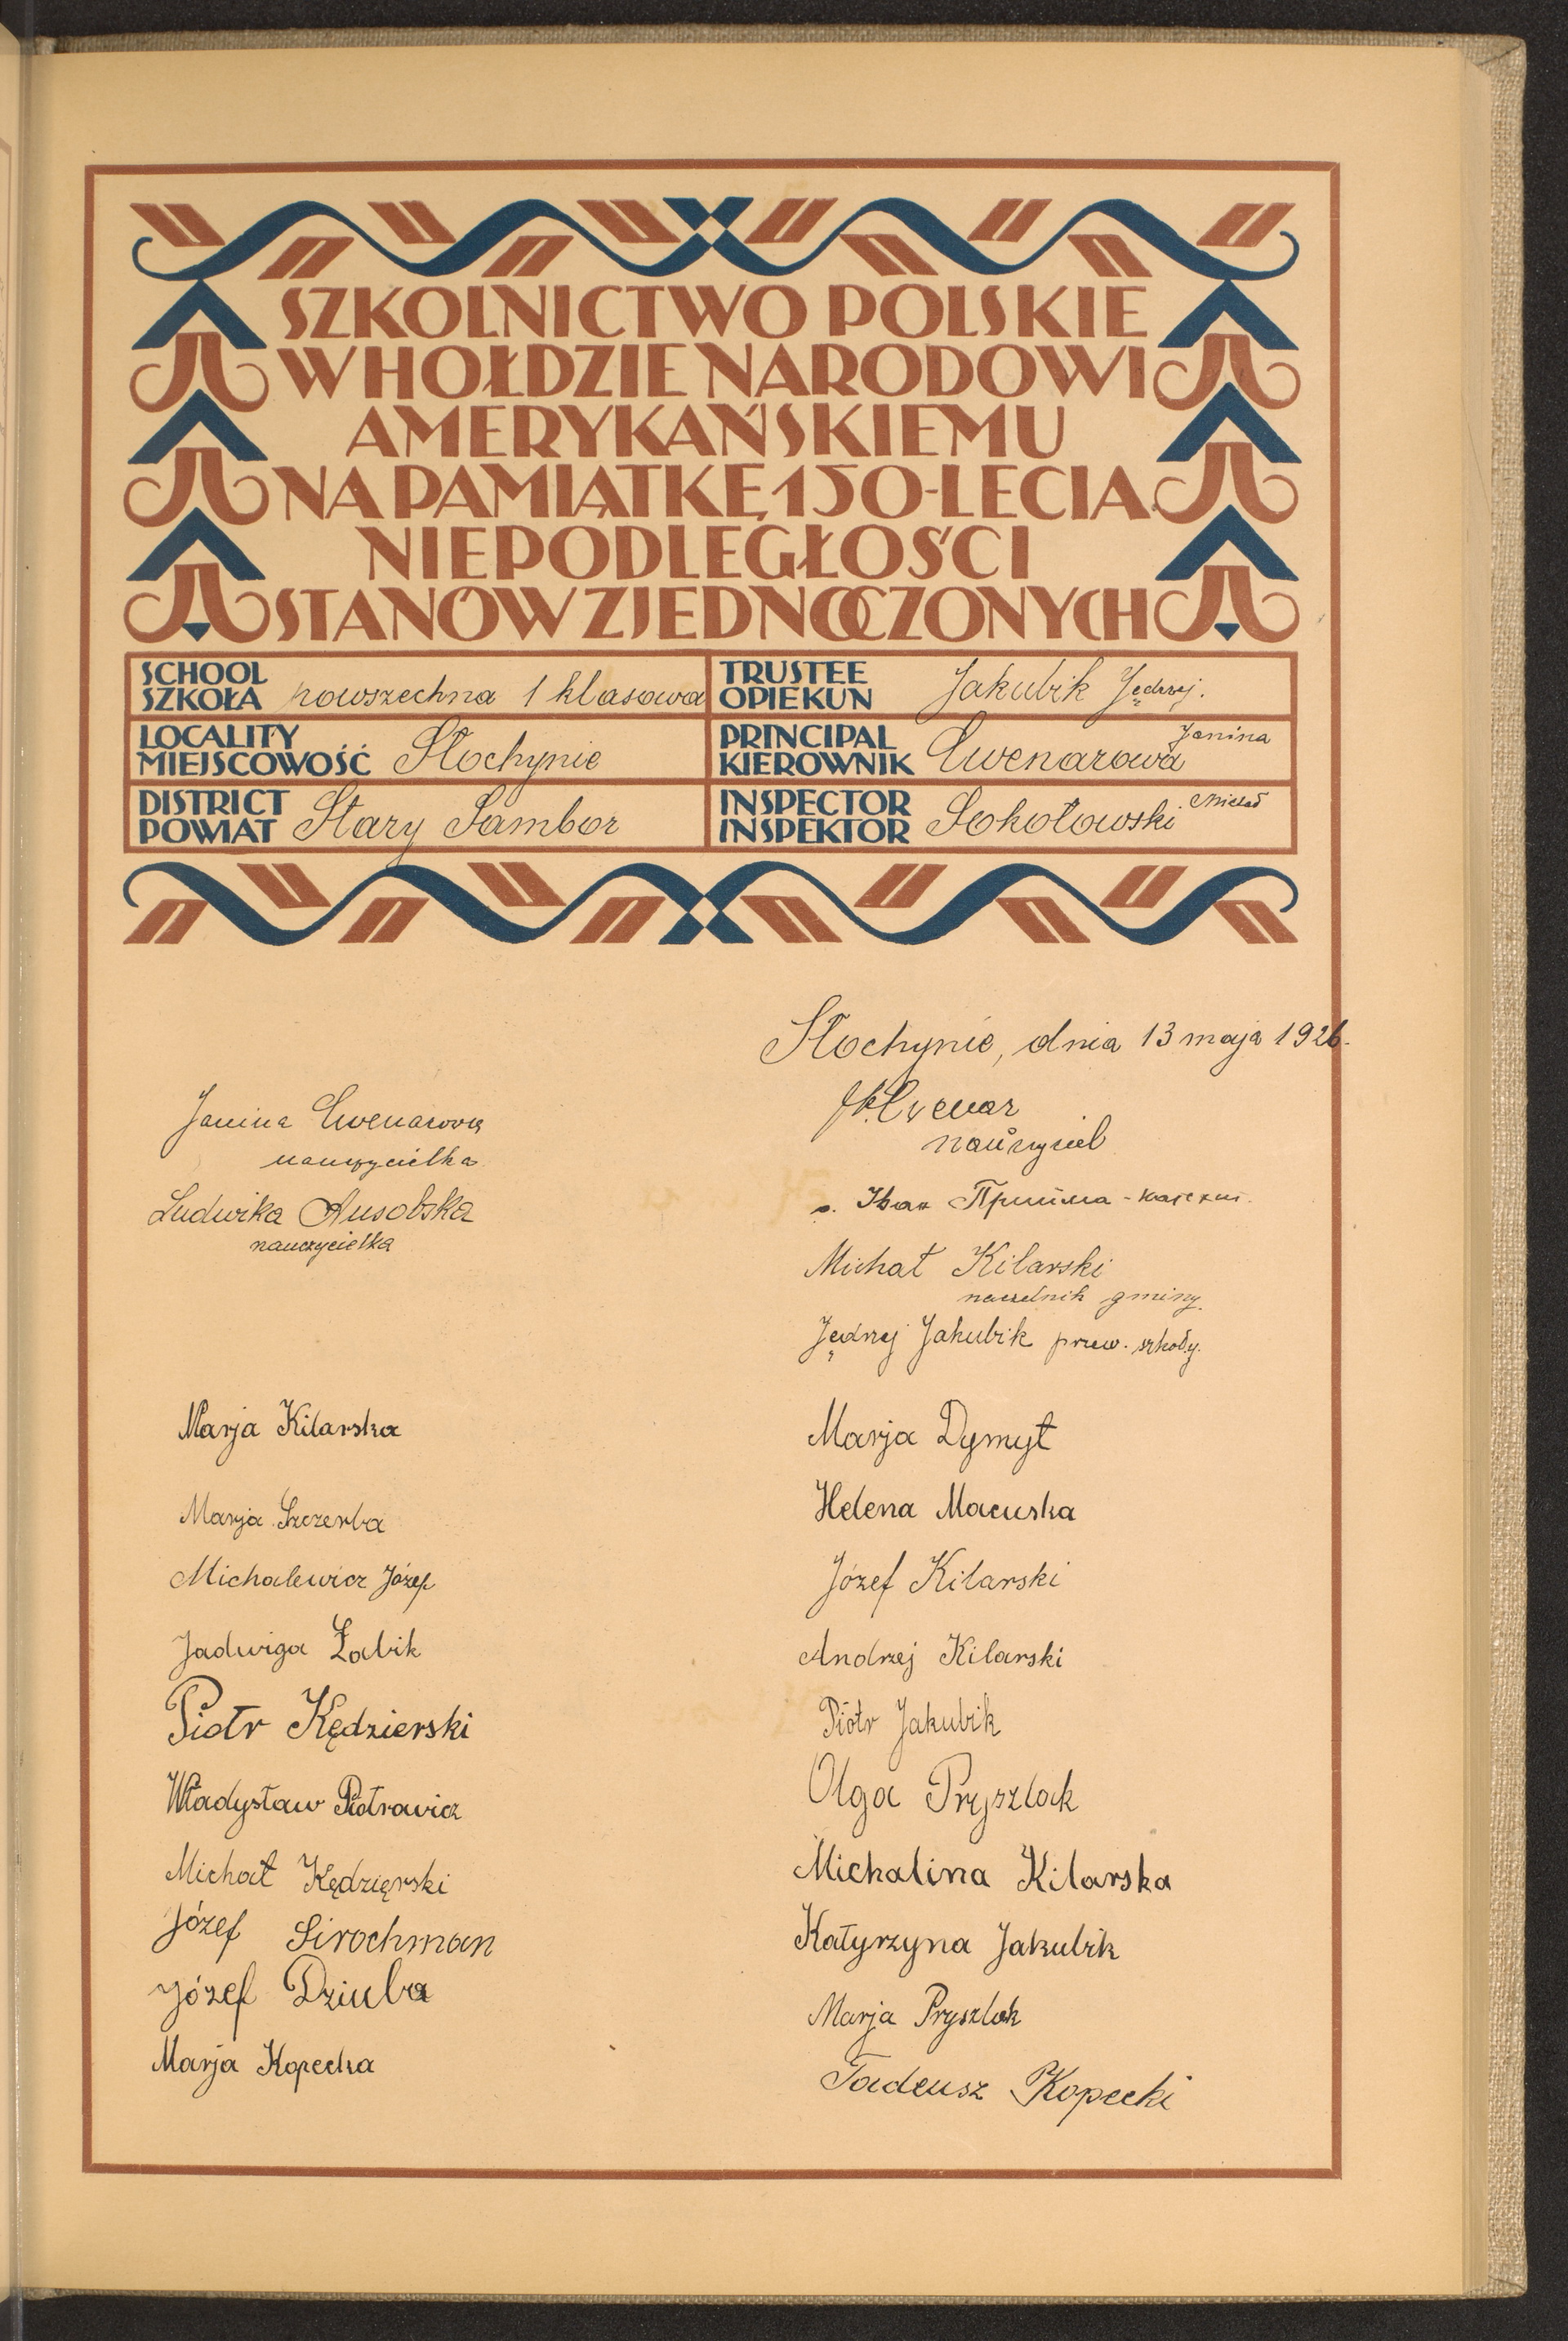 SZKOLNICTWO POLSKIE
W HOŁDZIE NARODOWI
AMERYKAŃSKIEMU
NA PAMIĄTKĘ 150-LECIA
NIEPODLEGŁOŚCI
STANÓW ZJEDNOCZONYCH
SCHOOL
SZKOŁA powszechna 1 klasowa
TRUSTEE
OPIEKUN Jakubik Jędrzej.
LOCALITY
MIEJSCOWOŚĆ Słochynie
PRINCIPAL
KIEROWNIK Ewenarowa Janina
DISTRICT
POWIAT Stary Sambor
INSPECTOR
INSPEKTOR Sokołowski
Słochynie, dnia 13 maja 1926.
Janina Ewenarowa
nauczycielka
Ludwika
nauczycielka
Ewenar
nauczyciel
о. Іван Прийма - катехит.
Michał Kilarski
naczelnik gminy.
Jędrzej Jakubik przew. szkoły.
Marja Kilarska
Marja Szczerba
Michalewicz Józef
Jadwiga Żabik
Piotr Kędzierski
Władysław Piotrowicz
Michał Kędzięrski
Józef Sirochman
Józef Dziuba
Marja Kopecka
Marja Dymyt
Helena Macuska
Józef Kilarski
Andrzej Kilarski
Piotr Jakubik
Olga Pryszlak
Michalina Kilarska
Katyrzyna Jakubik
Marja Pryszlak
Tadeusz Kopecki